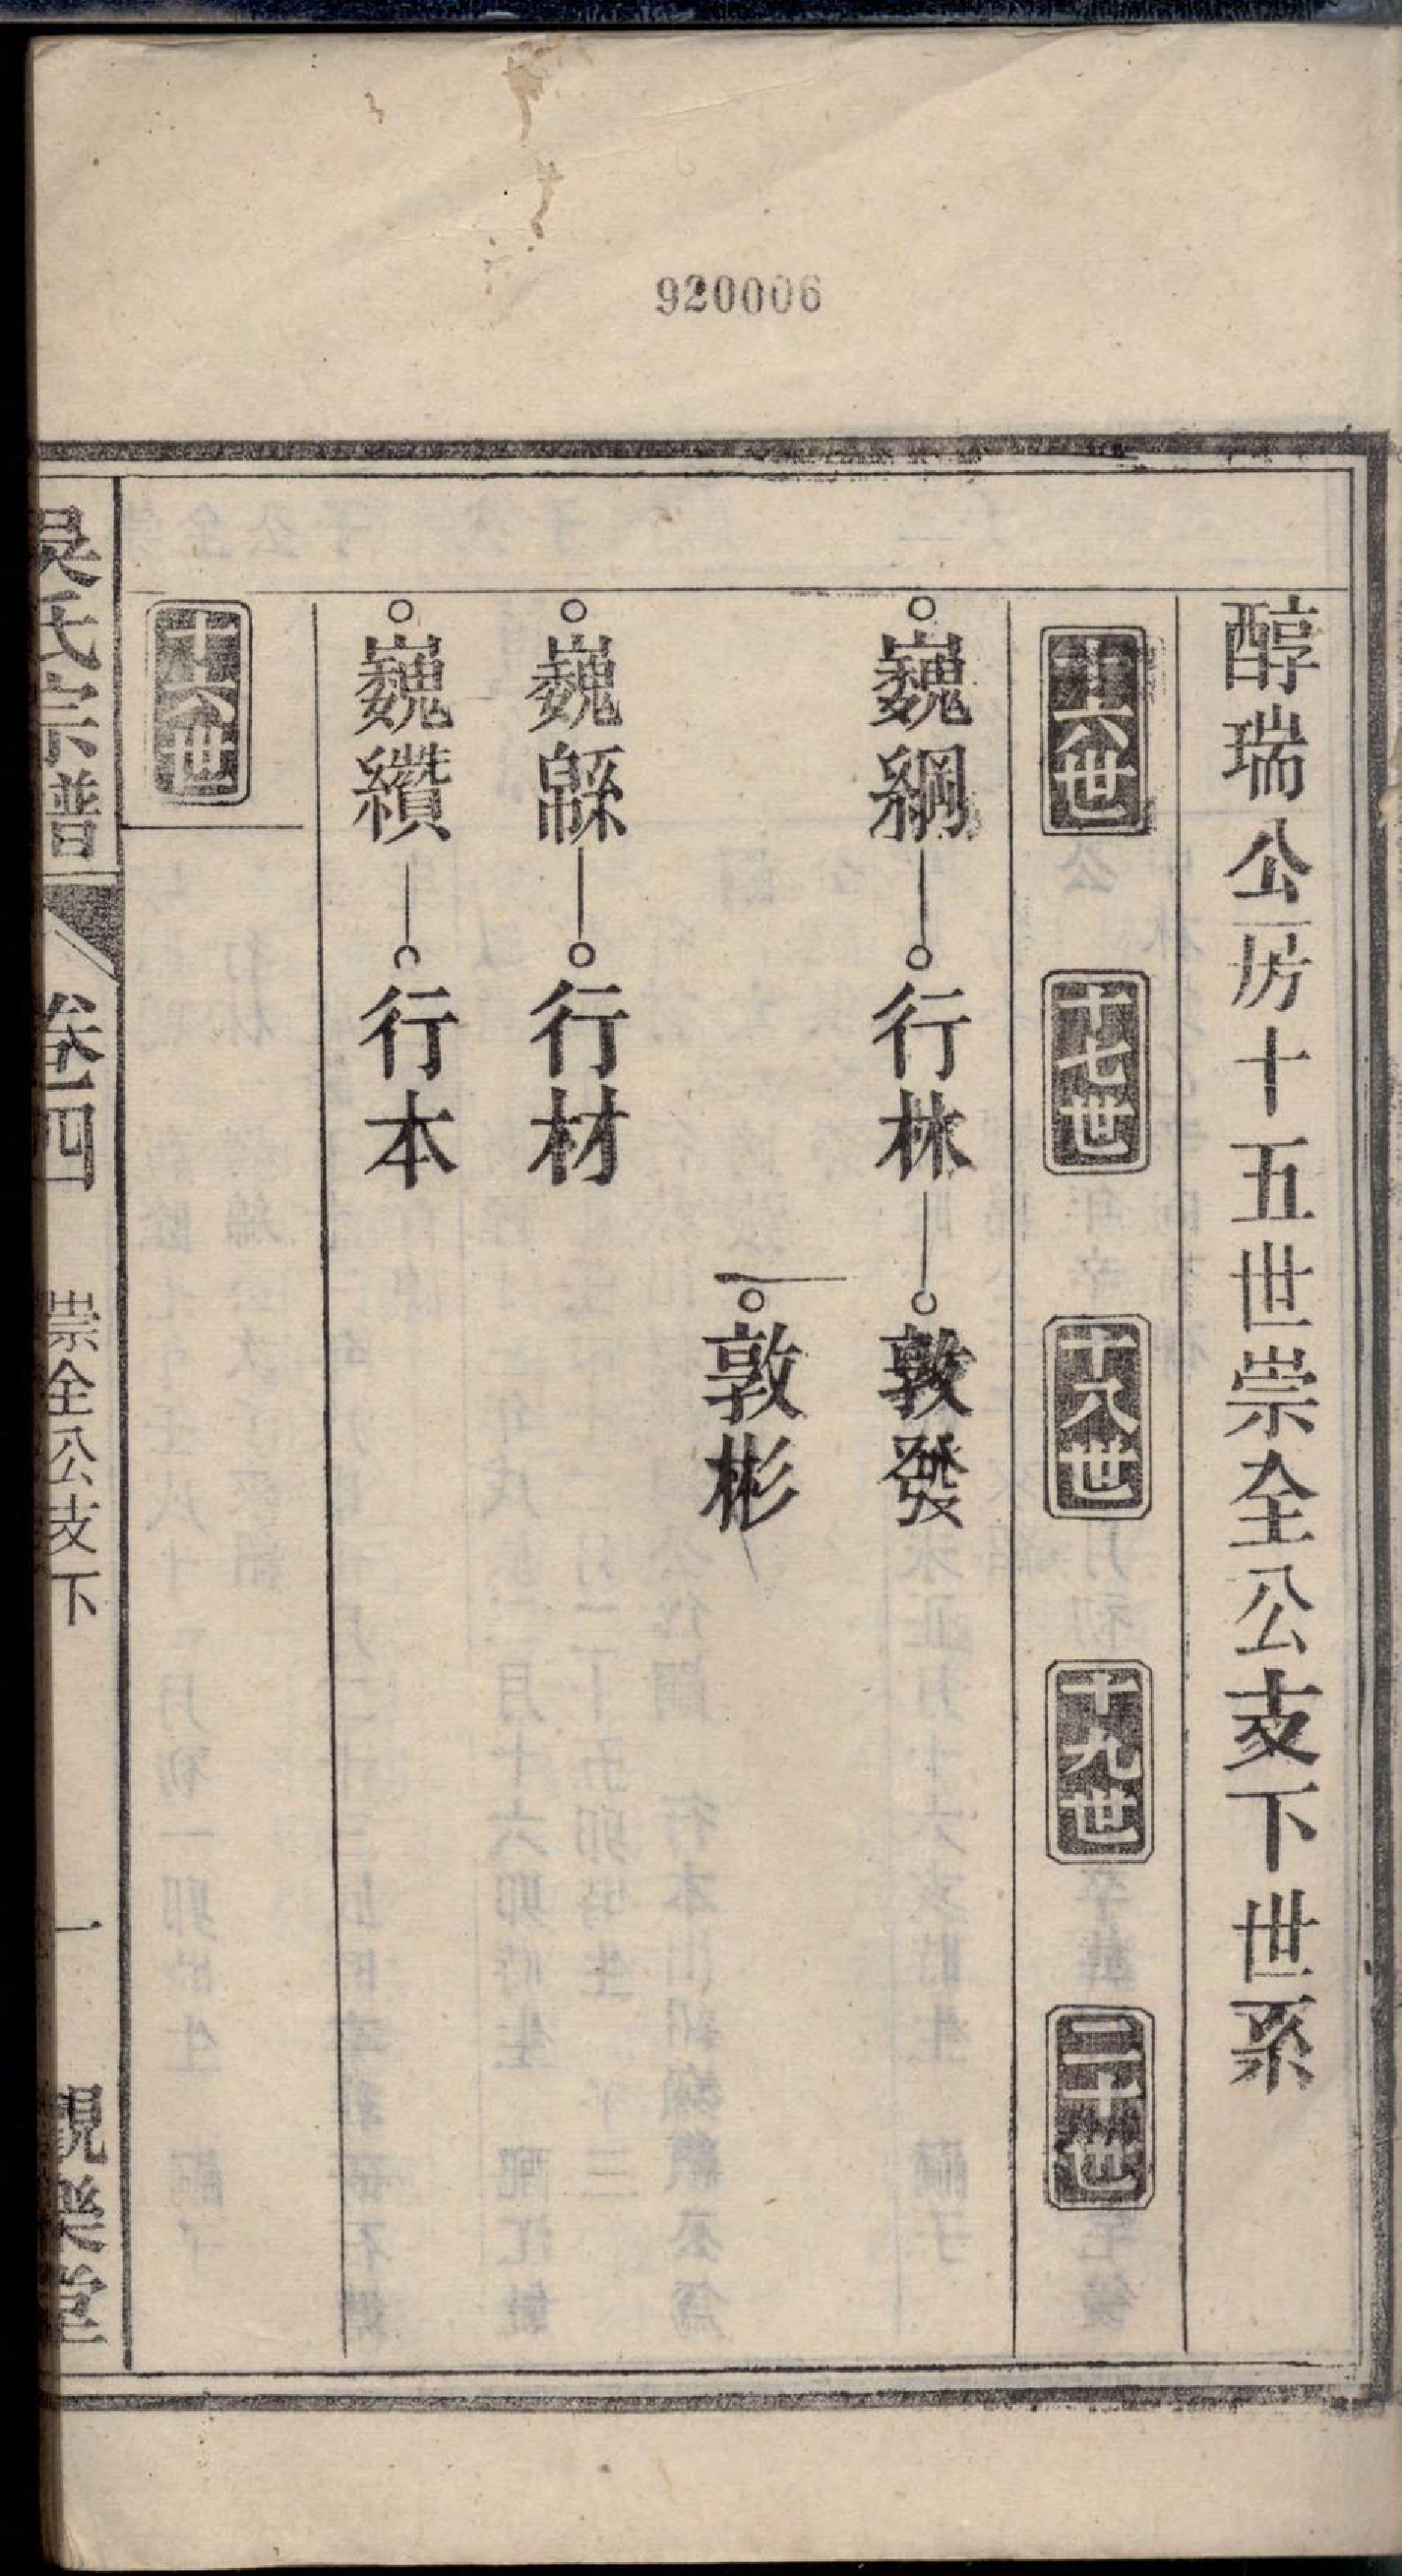 920006
醇瑞公房十五世崇全公支下世系
十六世
十七世
十八世
十九世
二十世
巍綱
行林
敦發
敦彬
巍緜
行材
巍纘
行本
十六世
吳氏宗譜
卷四
崇全公支下
一
親樂堂